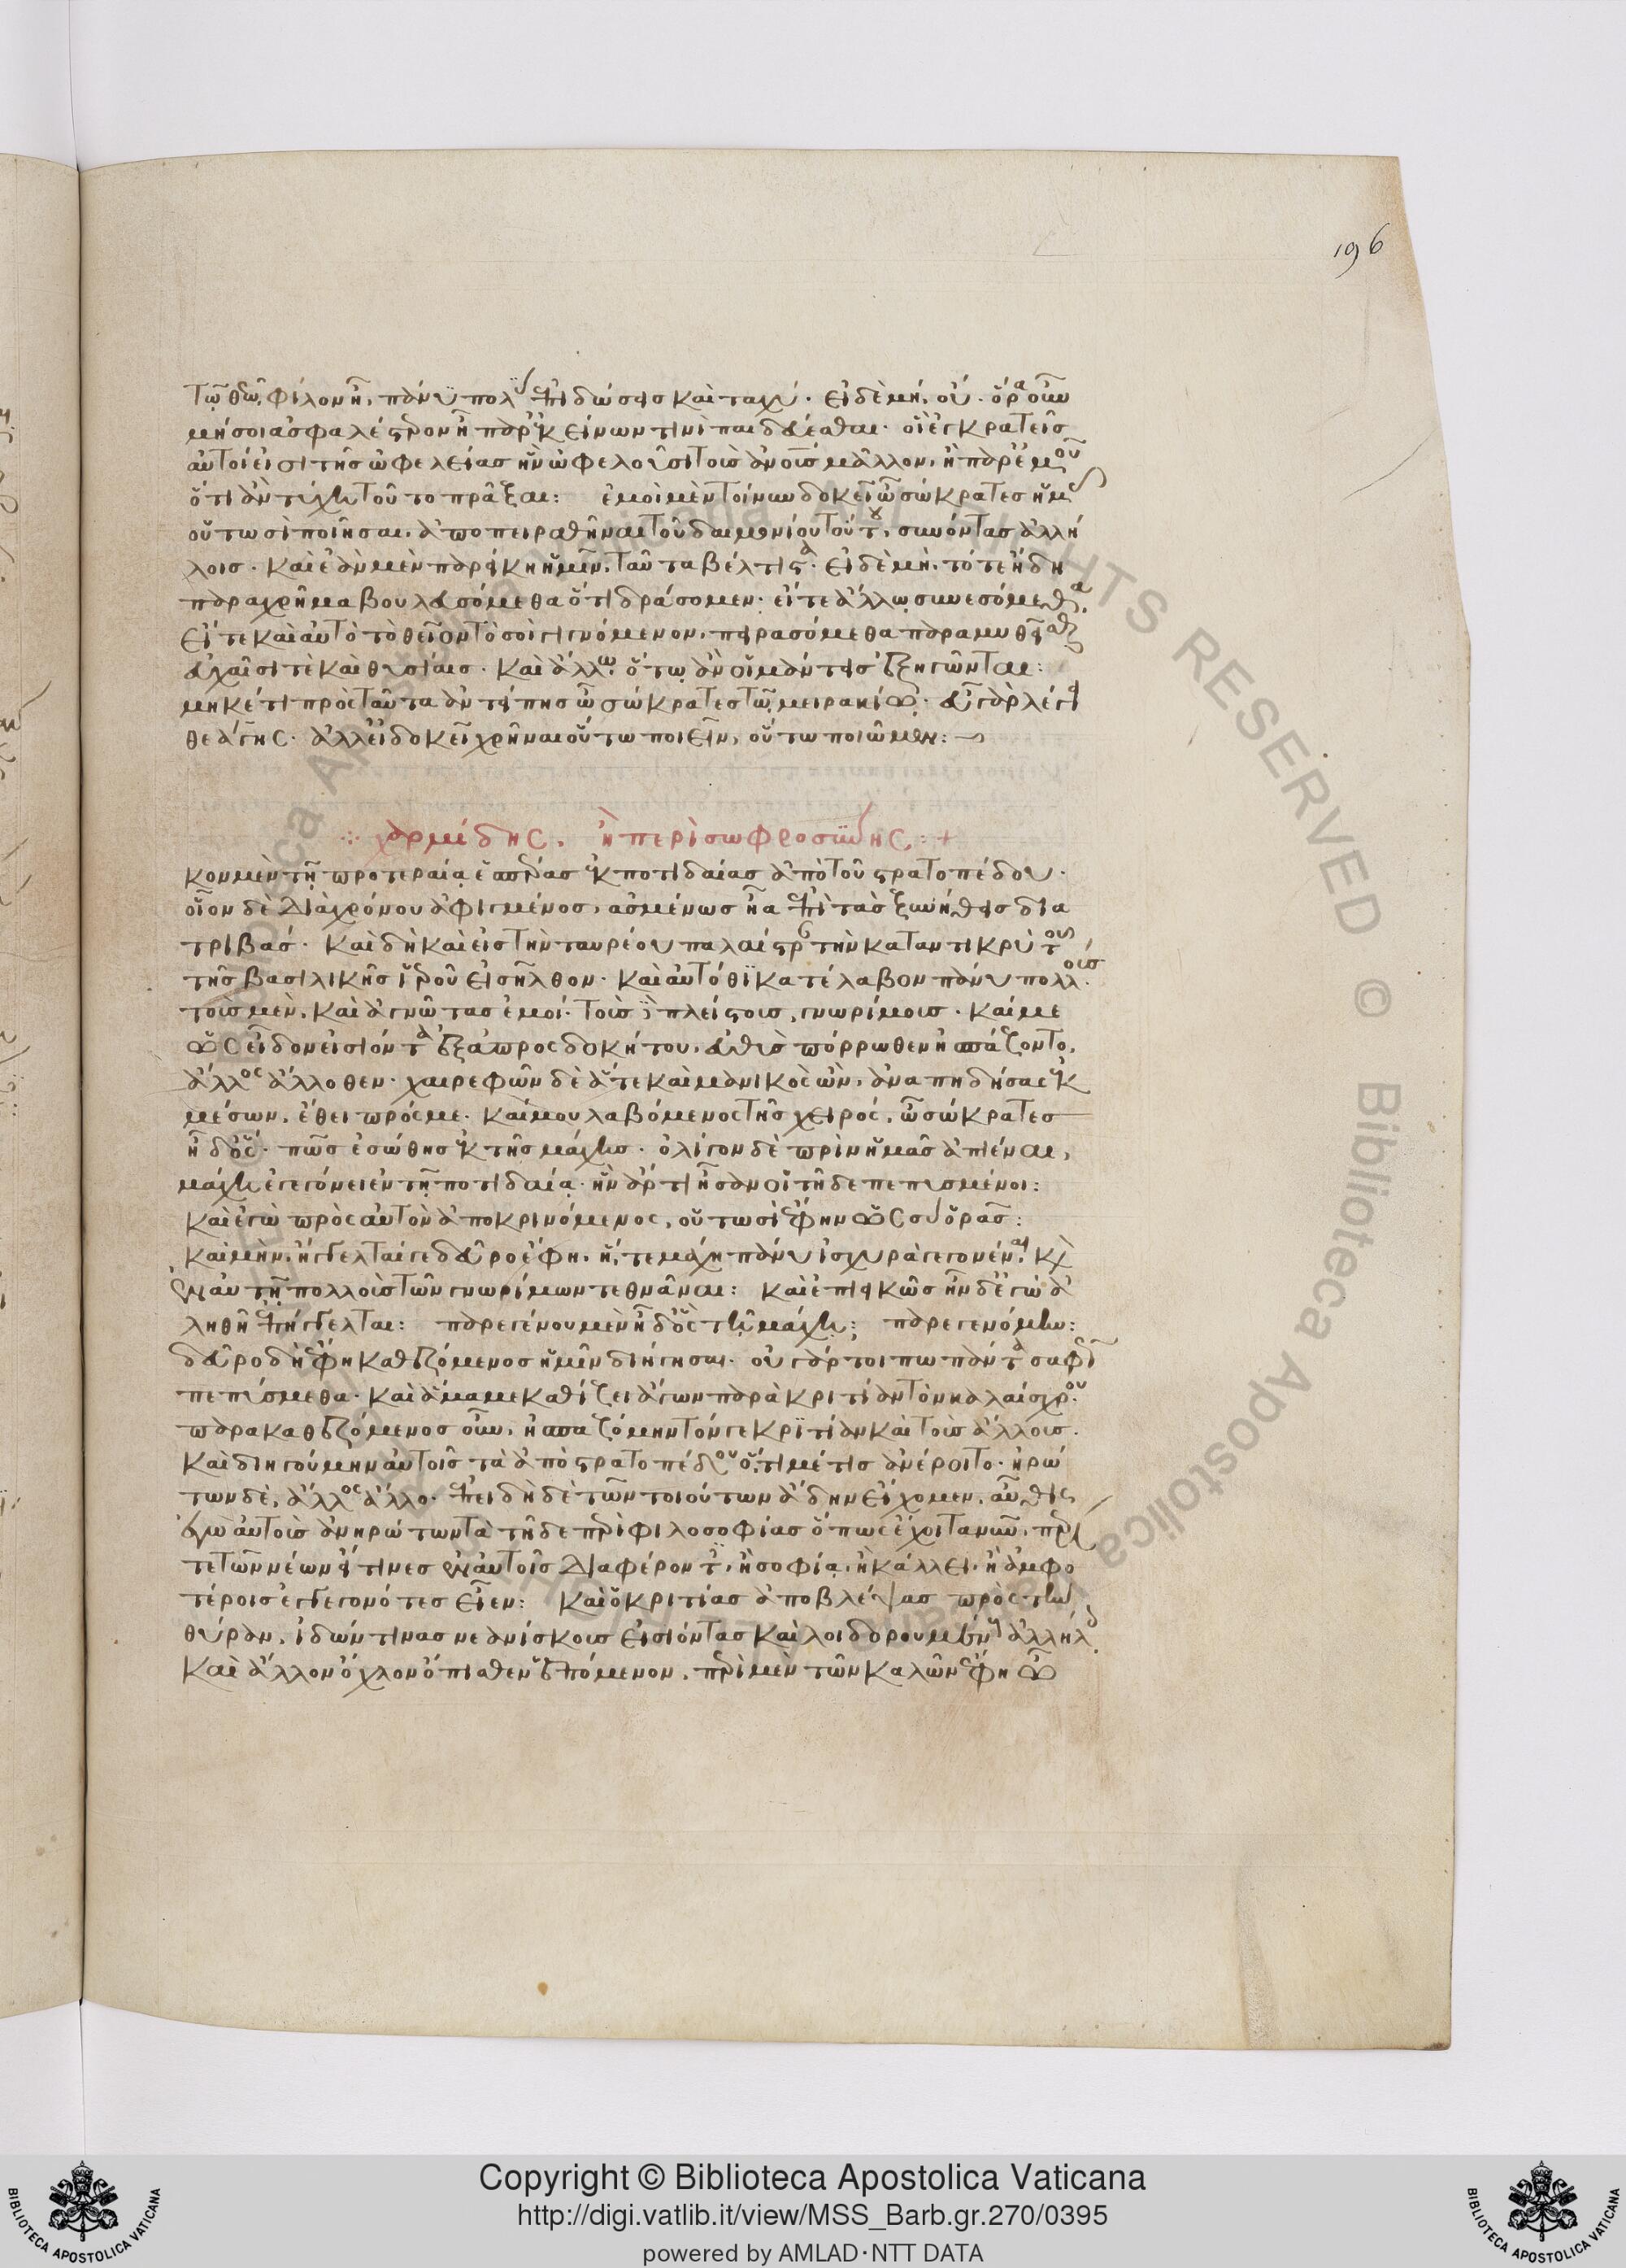 196
τῷ θεῷ φίλον ᾖ, πάνυ πολὺ ἐπιδώσεις καὶ ταχύ· εἰ δὲ μή, οὔ· ὅρα οὖν
μή σοι ἀσφαλέστερον ᾖ παρ' ἐκείνων τινὶ παιδεύεσθαι· οἳ ἐγκρατεῖς
αὐτοί εἰσι τῆς ὠφελείας ἣν ὠφελοῦσι τοὺς ἀνους μᾶλλον, ἢ παρ' ἐμοῦ
ὅτι ἂν τύχῃ τοῦτο πρᾶξαι: ἐμοὶ μὲν τοίνυν δοκεῖ ὦ σώκρατες ἡμᾶς
οὑτωσὶ ποιῆσαι, ἀποπειραθῆναι τοῦ δαιμονίου τούτου, συνόντας ἀλλή
λοις· καὶ ἐὰν μὲν παρείκῃ ἡμῖν, ταῦτα βέλτιστα· εἰ δὲ μή, τότε ἤδη
παραχρῆμα βουλευσόμεθα ὅτι δράσομεν· εἴτε ἄλλῳ συνεσόμεθα,
εἴτε καὶ αὐτὸ τὸ θεῖον τὸ σοὶ γιγνόμενον, πειρασόμεθα παραμυθεῖσθαι
εὐχαῖσί τε καὶ θυσίαις· καὶ ἄλλῳ ὅτῳ ἂν οἱ μάντεις ἐξηγῶνται:
μηκέτι πρὸς ταῦτα ἀντείπῃς ὦ σώκρατες τῷ μειρακίῳ· εὖ γὰρ λέγει
θεάγης· ἀλλ' εἰ δοκεῖ χρῆναι οὕτω ποιεῖν, οὕτω ποιῶμεν:
χαρμίδης. ἢ περὶ σωφροσύνης: +
κον μὲν τῇ προτεραίᾳ ἑσπέρας ἐκ ποτιδαίας ἀπὸ τοῦ στρατοπέδου·
οἷον δὲ διὰ χρόνου ἀφιγμένος, ἀσμένως ᾖα ἐπὶ τὰς ξυνήθεις δια
τριβάς· καὶ δὴ καὶ εἰς τὴν ταυρέου παλαίστραν τὴν καταντικρὺ τοῦ
τῆς βασιλικῆς ἱεροῦ εἰσῆλθον· καὶ αὐτόθι κατέλαβον πάνυ πολλοὺς
τοὺς μὲν, καὶ ἀγνῶτας ἐμοί· τοὺς δὲ πλείστους, γνωρίμους· καί με
ὡς εἶδον εἰσιόντα ἐξ ἀπροσδοκήτου, εὐθὺς πόρρωθεν ἠσπάζοντο,
ἄλλος ἄλλοθεν· χαιρεφῶν δὲ ἅτε καὶ μανικὸς ὢν, ἀναπηδήσας ἐκ
μέσων, ἔθει πρός με· καί μου λαβόμενος τῆς χειρός, ὦ σώκρατες
ἦ δ' ὅς· πῶς ἐσώθης ἐκ τῆς μάχης· ὀλίγον δὲ πρὶν ἡμᾶς ἀπιέναι,
μάχη ἐγεγόνει ἐν τῇ ποτιδαίᾳ· ἣν ἄρτι ἦσαν οἱ τῇδε πεπυσμένοι:
καὶ ἐγὼ πρὸς αὐτὸν ἀποκρινόμενος, οὑτωσὶ ἔφην ὡς σὺ ὁρᾷς:
καὶ μὴν, ἤγγελταί γε δεῦρο ἔφη, ἥ, τε μάχη πάνυ ἰσχυρὰ γεγονέναι, κὶ
ἐν αὐτῇ πολλοὺς τῶν γνωρίμων τεθνάναι: καὶ ἐπιεικῶς ἦν δ' ἐγὼ ἀ
ληθῆ ἐπήγγελται: παρεγένου μὲν ἦ δ' ὃς τῇ μάχῃ; παρεγενόμην:
δεῦρο δὴ ἔφη καθεζόμενος ἡμῖν διήγησαι· οὐ γάρ τοί πω πάντα σαφῶς
πεπύσμεθα· καὶ ἅμα με καθίζει ἄγων παρὰ κριτίαν τὸν καλαίσχρου
παρακαθεζόμενος οὖν, ἠσπαζόμην τόν γε κριτίαν καὶ τοὺς ἄλλους.
καὶ διηγούμην αὐτοῖς τὰ ἀπὸ στρατοπέδου ὅ,τι μέ τις ἀνέροιτο· ἠρώ
των δὲ, ἄλλος ἄλλο· ἐπειδὴ δὲ τῶν τοιούτων ἄδην εἴχομεν, αὖθις
ἐγὼ αὐτοὺς ἀνηρώτων τὰ τῇδε περὶ φιλοσοφίας ὅπως ἔχοι τανῦν, περί
τε τῶν νέων εἴ τινες ἐν αὐτοῖς διαφέροντες, ἢ σοφίᾳ, ἢ κάλλει, ἢ ἀμφο
τέροις ἐγγεγονότες εἶεν: καὶ ὁ κριτίας ἀποβλέψας πρὸς τὴν
θύραν, ἰδών τινας νεανίσκους εἰσιόντας καὶ λοιδορουμένους ἀλλήλοις
καὶ ἄλλον ὄχλον ὄπισθεν ἑπόμενον, περὶ μὲν τῶν καλῶν ἔφη ὦ
Copyright © Biblioteca Apostolica Vaticana
http://digi.vatlib.it/view/MSS_Barb.gr.270/0395
powered by AMLAD·NTT DATA